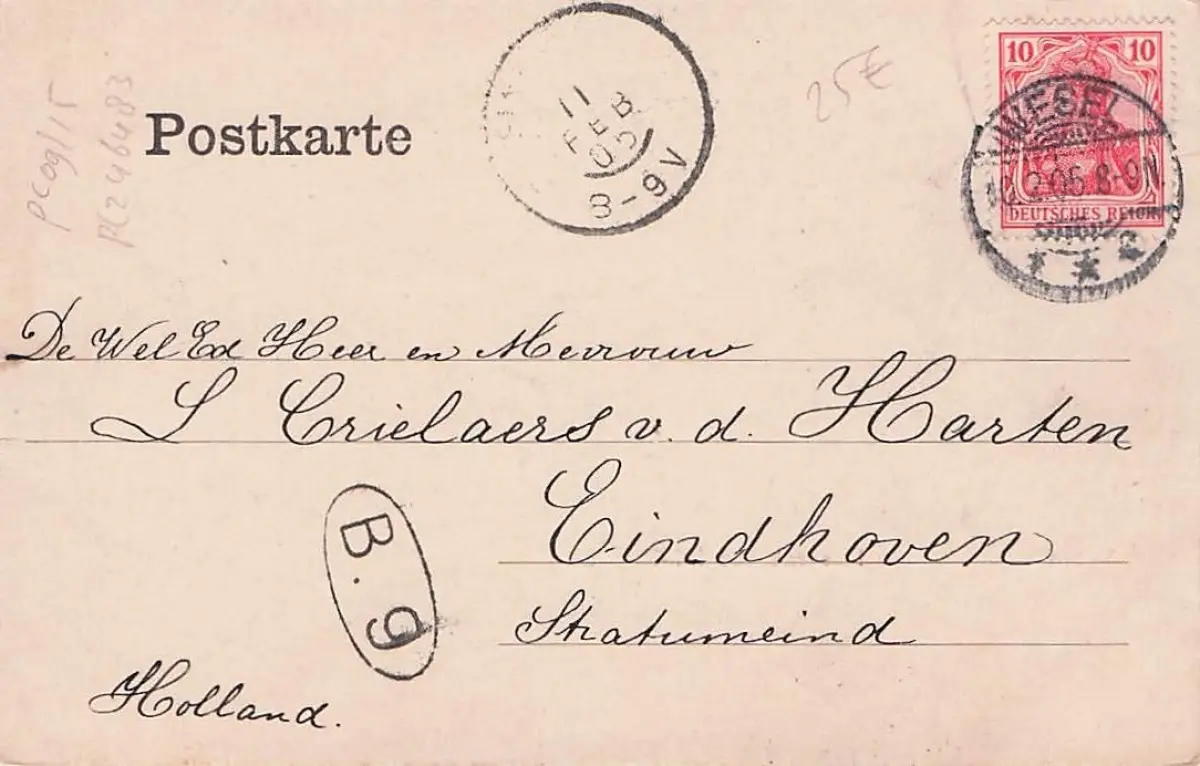 Postkarte
pcog/15
PC246483
11
FEB
05
8-9V
25€
10 10
DEUTSCHES REICH
WESEL
10.2.05.8-9N.
De Wel Ed Heer en Mevrouw
L Crielaers v. d. Harten
Eindhoven
Stratumeind
B.9
Holland.